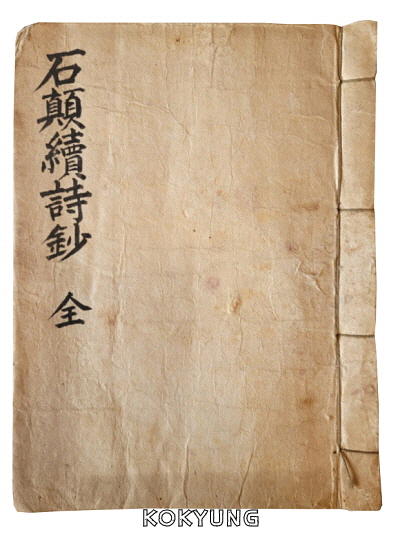 石顛續詩鈔 全
KOKYUNG